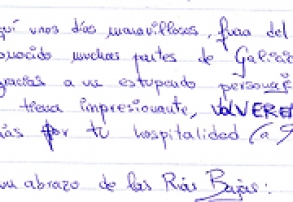 quí unos días maravillosos, fuera del
onocido muchas partes de Galicia
gracias a un estupendo personal
tierra impresionante, VOLVERE
ias por tu hospitalidad (a
un abrazo de las Rías Bajas: